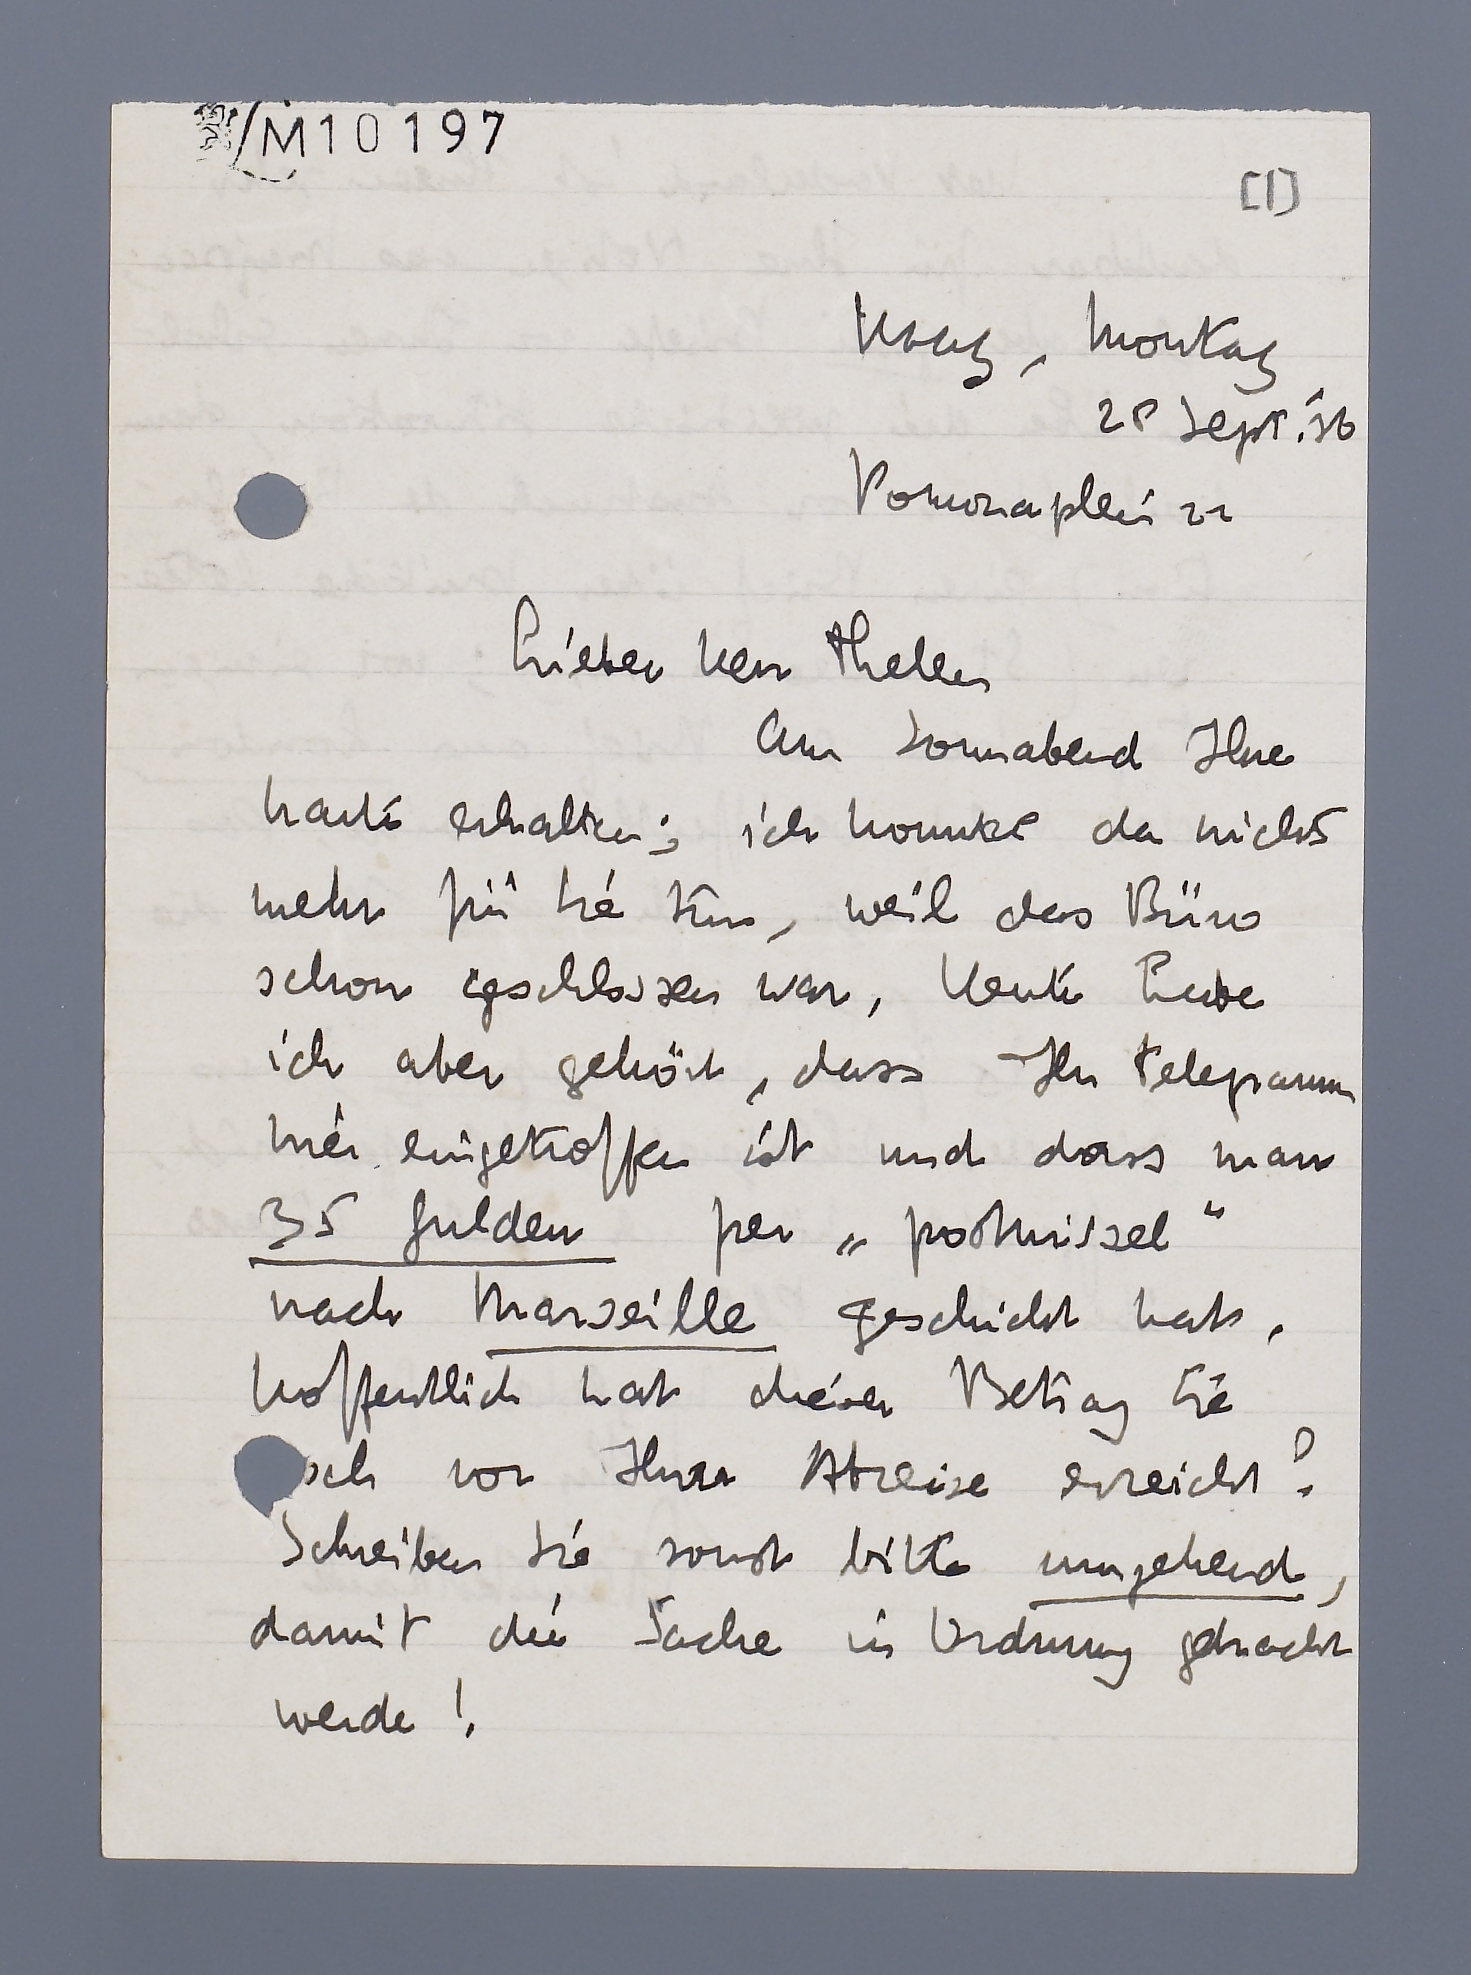 M10197
[1]
Haag, Montag
28 Sept. '36
Pomonaplein 22
Lieber Herr Thelen
Am Sonnabend Ihre
Karte erhalten; ich konnte da nichts
mehr für Sie tun, weil das Büro
schon geschlossen war, Heute habe
ich aber gehört, dass Ihr Telegramm
hier eingetroffen ist und dass man
35 Gulden per „postwissel“
nach Marseille geschickt hat.
Hoffentlich hat dieser Betrag Sie
och vor Ihrer Abreise erreicht?
Schreiben Sie sonst bitte umgehend,
damit die Sache in Ordnung gebracht
werde!